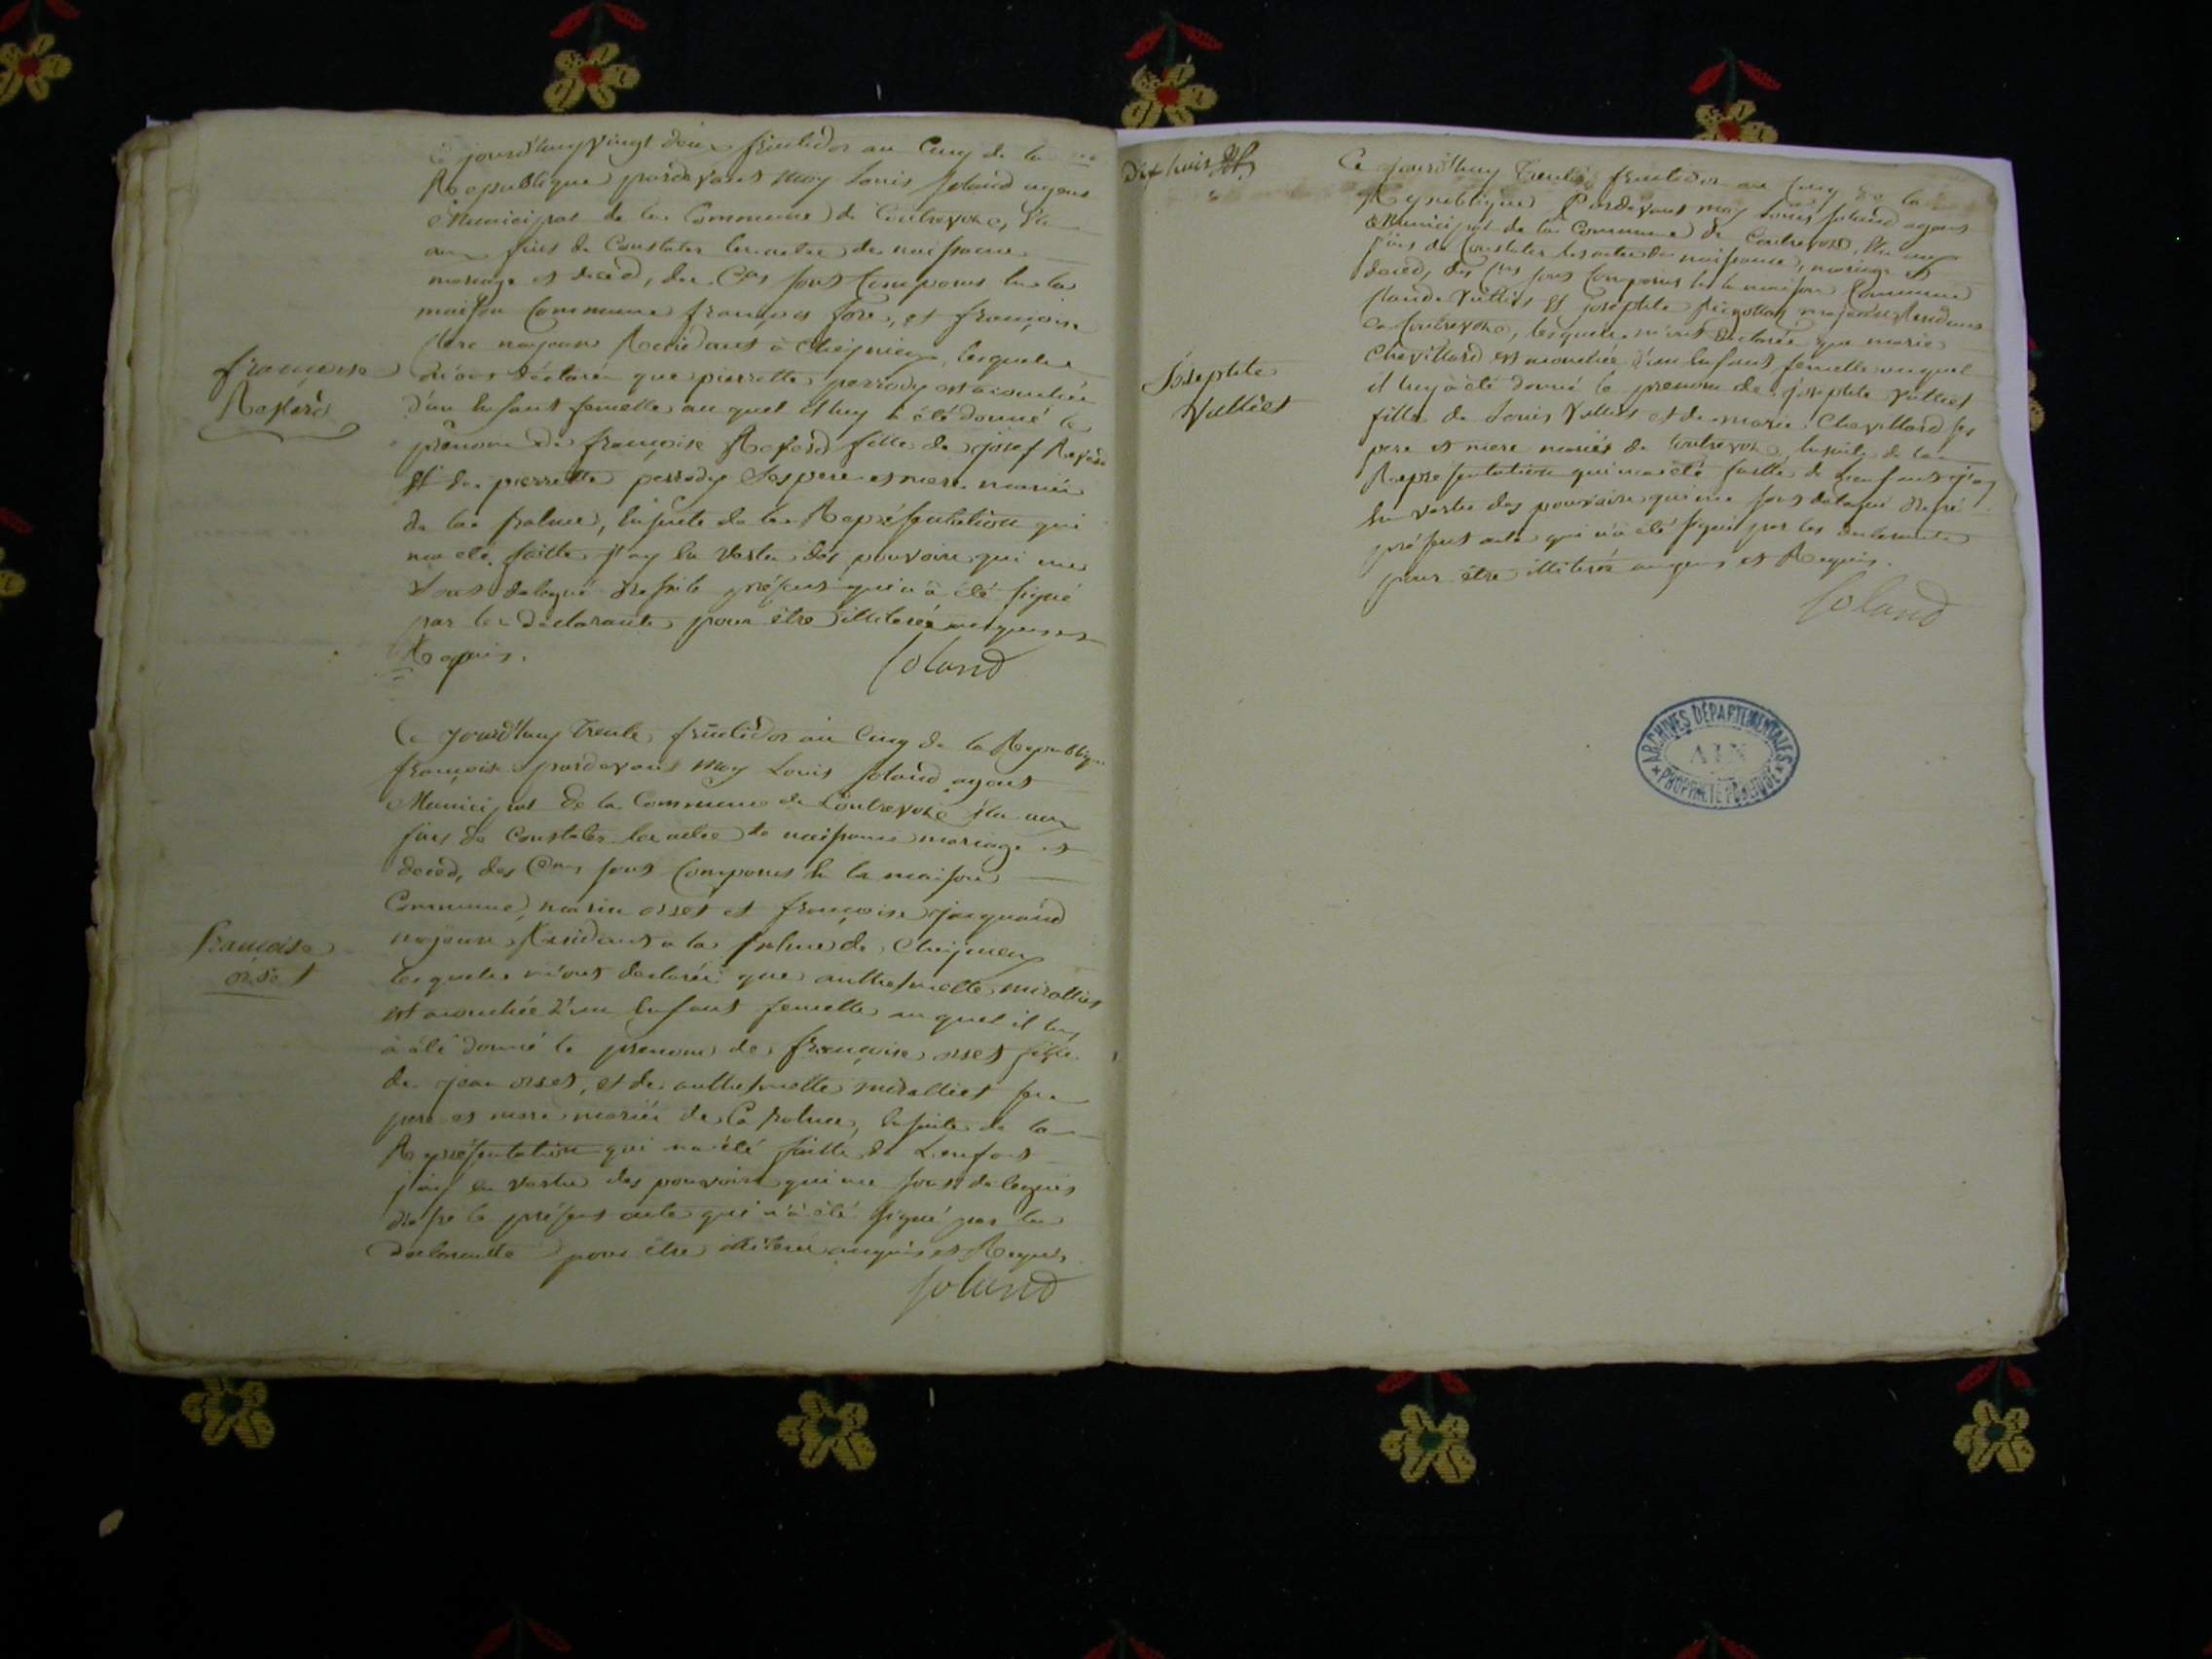 Ce jourd'huy vingt deux fructidor an Cinq de la
Republique pardevant moy Louis Joland agent
Municipal de la Commune de Contrevoz, Elu
aux fins de Constater les actes de naissance
mariage et deced, des Cns sont Comparus en la
maison Commune françois fore, et françoise
majeurs Residants à Cheignieu, lesquels
françoise
Raferd
m'ons déclarés que pierrette perrody est acouchée
d'un enfant femelle au quel il luy à été donné le
prenom de françoise Raferd fille de josef Raferd
et de pierrette perrody ses pere et mere mariés
de la balme, ensuite de la Representation qui
m'a été faitte j'ay en vertu des pouvoirs qui me
sont delegué dressé le présent qui n'a été signé
par les déclarants pour être illiterés enquis et
Requis.
Joland
Ce jourd'huy trente fructidor an Cinq de la Republique
françoise pardevant moy Louis Joland agent
Municipal de la Commune de Contrevoz élu aux
fins de Constater les actes de naissance mariage et
deced, des Cens sont Comparus en la maison
Commune, marin orset et françoise jacquand
majeurs Residants a la balme de Cheignieu
françoise
orset
lesquels m'ont declarés que anthelmette miralliet
est acouchée d'un enfant femelle au quel il luy
à été donné le prenom de françoise orset fille
de jean orset, et de anthelmette miralliet ses
pere et mere mariés de La balme, ensuite de la
Représentation qui m'a été faitte de L'enfant
j'ay en vertu des pouvoirs qui me sont delegués
dressé le présent acte qui n'a été signé par les
declarants pour être illiterés enquis et Requis.
Joland
Dix huit
Ce jourd'huy trente fructidor an Cinq de la
Republique Pardevant moy Louis Joland agent
Municipal de la Commune de Contrevoz, Elu aux
fins de Constater les actes de naissance, mariage et
deced, des Cns sont Comparus en la maison Commune
Claude Vulliet et josephte majeurs Residants
a Contrevoz, lesquels m'ont déclarés que marie
Chevillard est acouchée d'un enfant femelle auquel
Josephte
Vulliet
il luy à été donné le prenom de josephte Vulliet
fille de Louis Vulliet et de marie Chevillard ses
pere et mere mariés de Contrevoz, ensuite de la
Representation qui m'a été faitte de L'enfant j'ay
en vertu des pouvoirs qui me sont delegué dressé
présent acte qui n'a été signé par les declarants
pour être illiterés enquis et Requis.
Joland
ARCHIVES DÉPARTEMENTALES
AIN
PROPRIÉTÉ PUBLIQUE